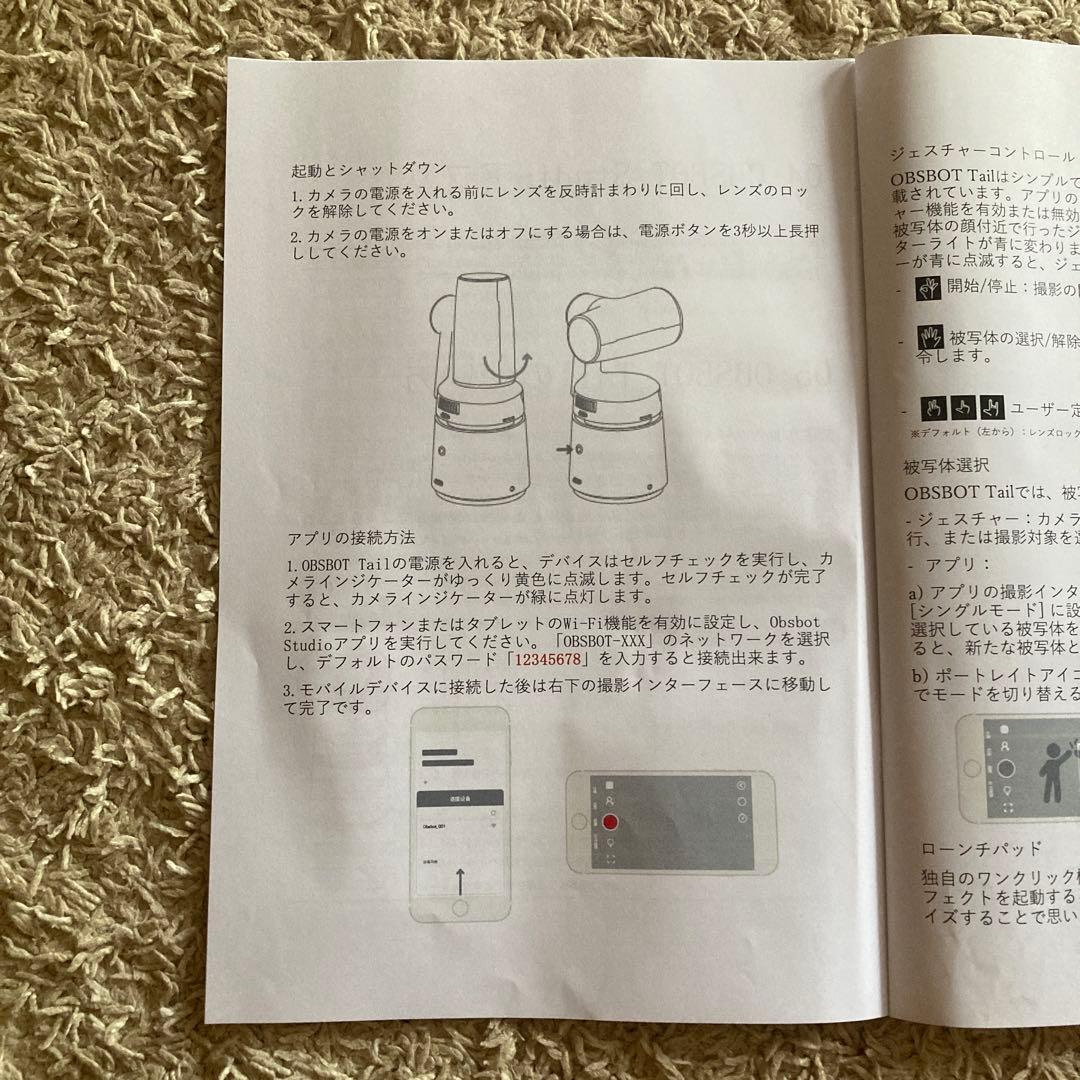 起動とシャットダウン
1. カメラの電源を入れる前にレンズを反時計まわりに回し、レンズのロッ
クを解除してください。
2. カメラの電源をオンまたはオフにする場合は、電源ボタンを3秒以上長押
ししてください。
アプリの接続方法
1. OBSBOT Tailの電源を入れると、デバイスはセルフチェックを実行し、カ
メラインジケーターがゆっくり黄色に点滅します。セルフチェックが完了
すると、カメラインジケーターが緑に点灯します。
2. スマートフォンまたはタブレットのWi-Fi機能を有効に設定し、Obsbot
Studioアプリを実行してください。「OBSBOT-XXX」のネットワークを選択
し、デフォルトのパスワード「12345678」を入力すると接続出来ます。
3. モバイルデバイスに接続した後は右下の撮影インターフェースに移動し
て完了です。
Obsbot_001
ジェスチャーコントロール
OBSBOT Tailはシンプルで
載されています。アプリの
ャー機能を有効または無効
被写体の顔付近で行ったジ
ターライトが青に変わりま
ーが青に点滅すると、ジェ
- 開始/停止：撮影の
- 被写体の選択/解除
令します。
- ユーザー定
※デフォルト（左から）：レンズロック
被写体選択
OBSBOT Tailでは、被写
- ジェスチャー：カメラ
行、または撮影対象を選
- アプリ：
a) アプリの撮影インタ
[シングルモード] に設
選択している被写体を
ると、新たな被写体と
b) ポートレイトアイコ
でモードを切り替える
ローンチパッド
独自のワンクリック機
フェクトを起動する
イズすることで思い